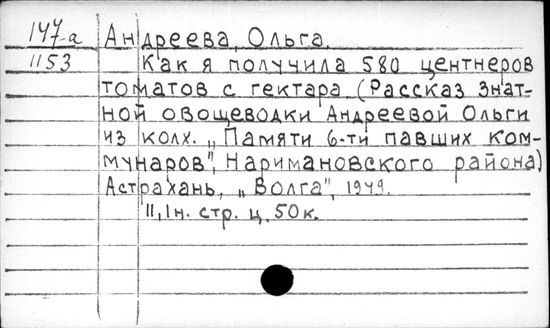 147-а Андреева, Ольга.
1153 Как я получила 580 центнеров
томатов с гектара (Рассказ знат-
ной овощеводки Андреевой Ольги
из колх. „Памяти 6-ти павших ком-
мунаров", Наримановского района)
Астрахань, „Волга", 1949.
11,1н. стр. ц. 50к.